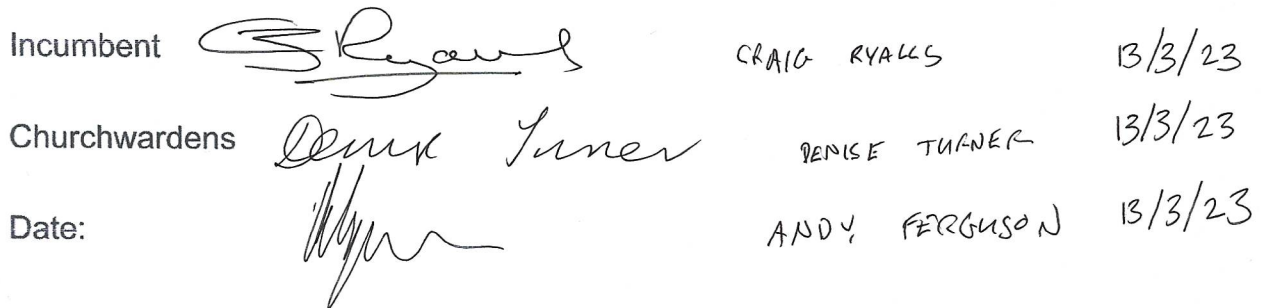 Incumbent CRAIG RYALLS 13/3/23
Churchwardens Denise Turner DENISE TURNER 13/3/23
Date: ANDY FERGUSON 13/3/23